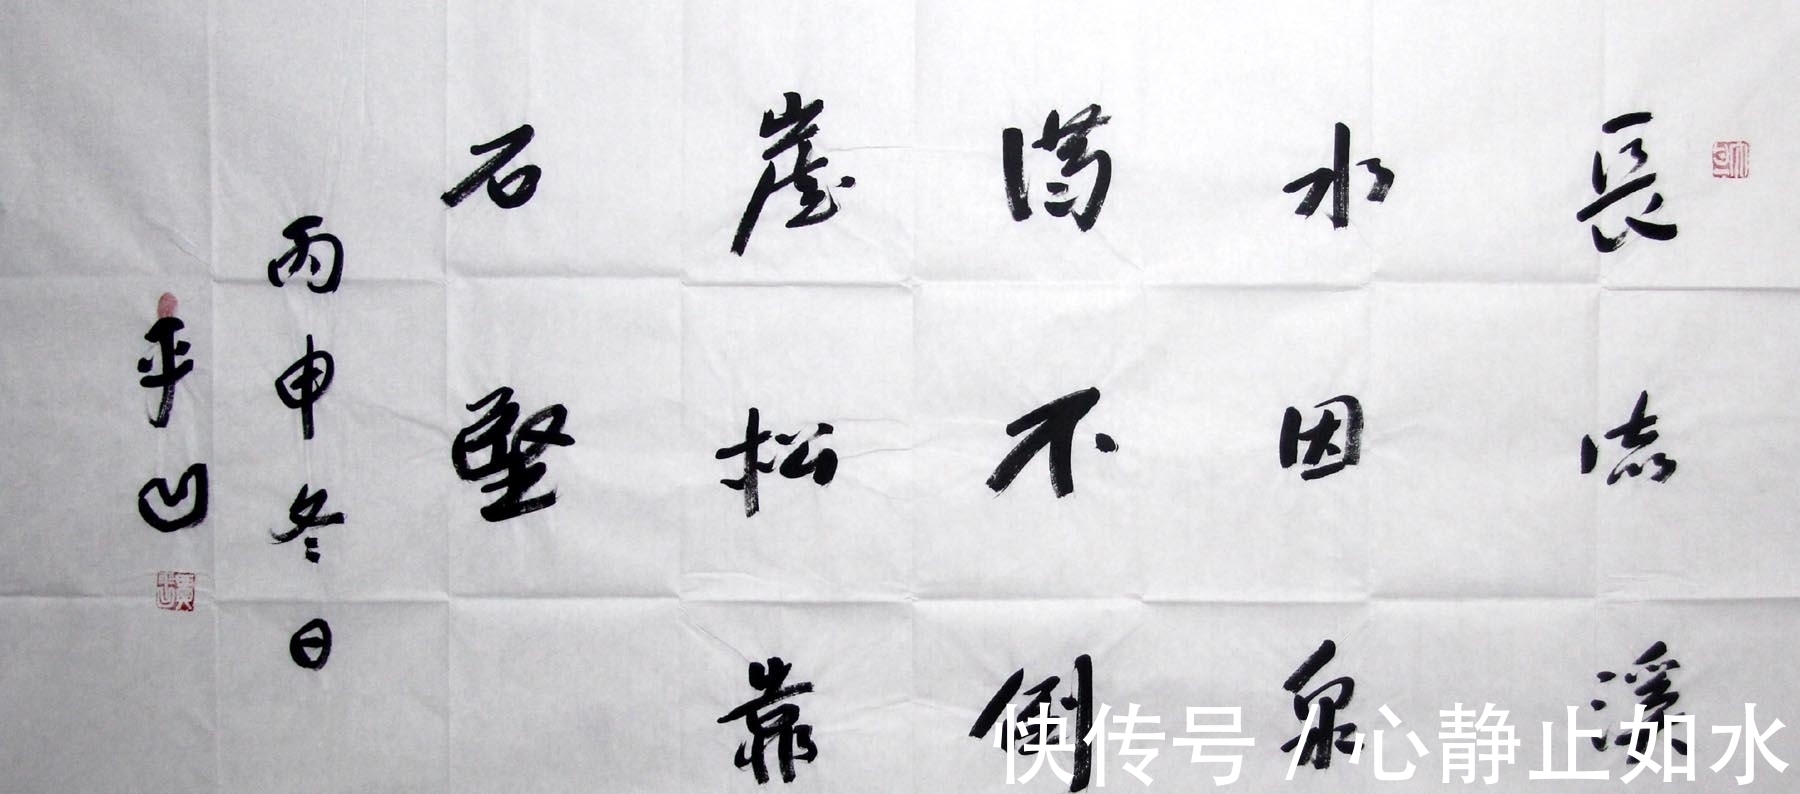 長流溪
水因泉
满不倒
崖松靠
石堅
丙申冬日
平凹
快传号 / 心静止如水